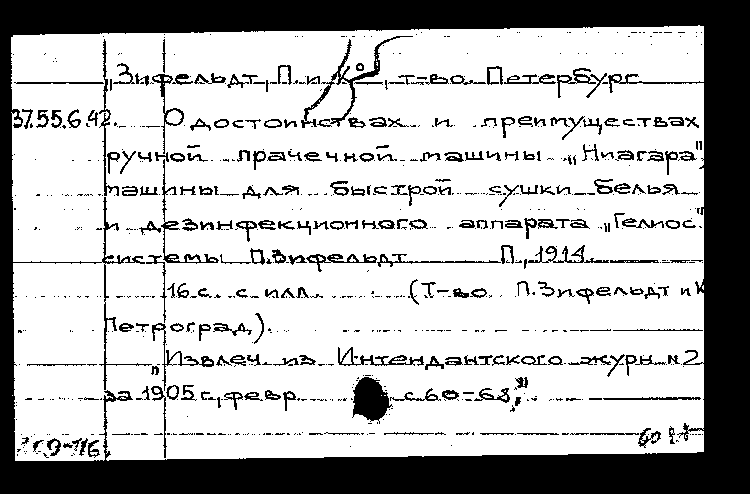 „Зифельдт, П. и К°", т-во. Петербург
37.55.6.42. О достоинствах и преимуществах
ручной прачечной машины „Ниагара",
машины для быстрой сушки белья
и дезинфекционного аппарата „Гелиос"
системы П.Зифельдт П., 1914.
16 с. с илл. (Т-во П.Зифельдт и К
Петроград).
„Извлеч. из Интендантского журн № 2
за 1905 г., февр с 60-68."